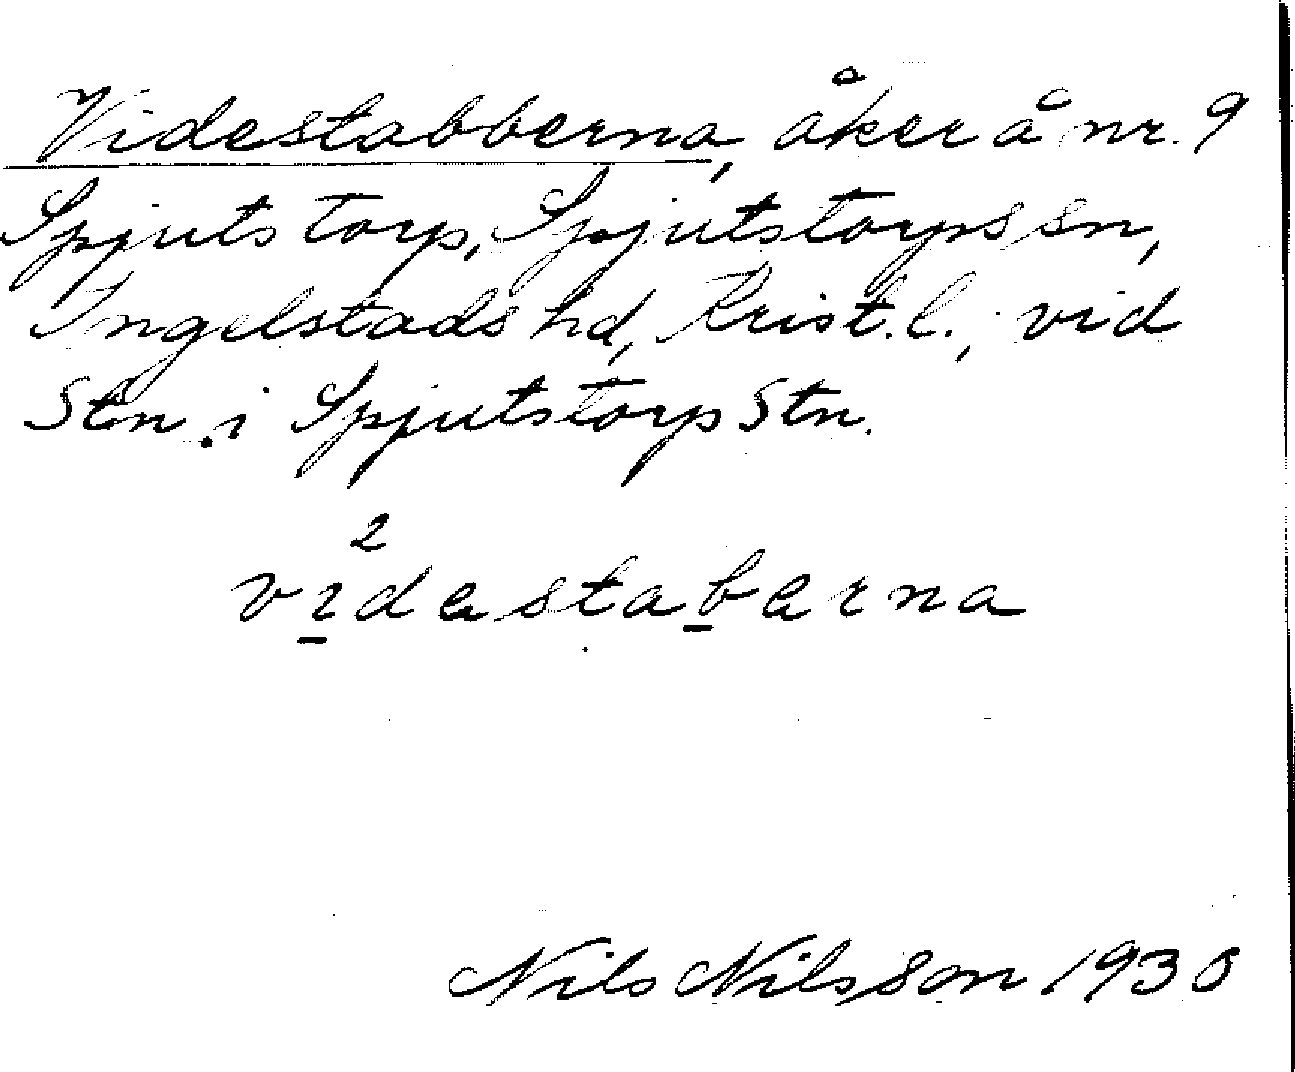 Videstabberna, åker å nr. 9
Spjutstorp, Spjutstorps sn,
Ingelstads hd, Krist. l., vid
Stn. i Spjutstorps Stn.
2
videstaberna
Nils Nilsson 1930